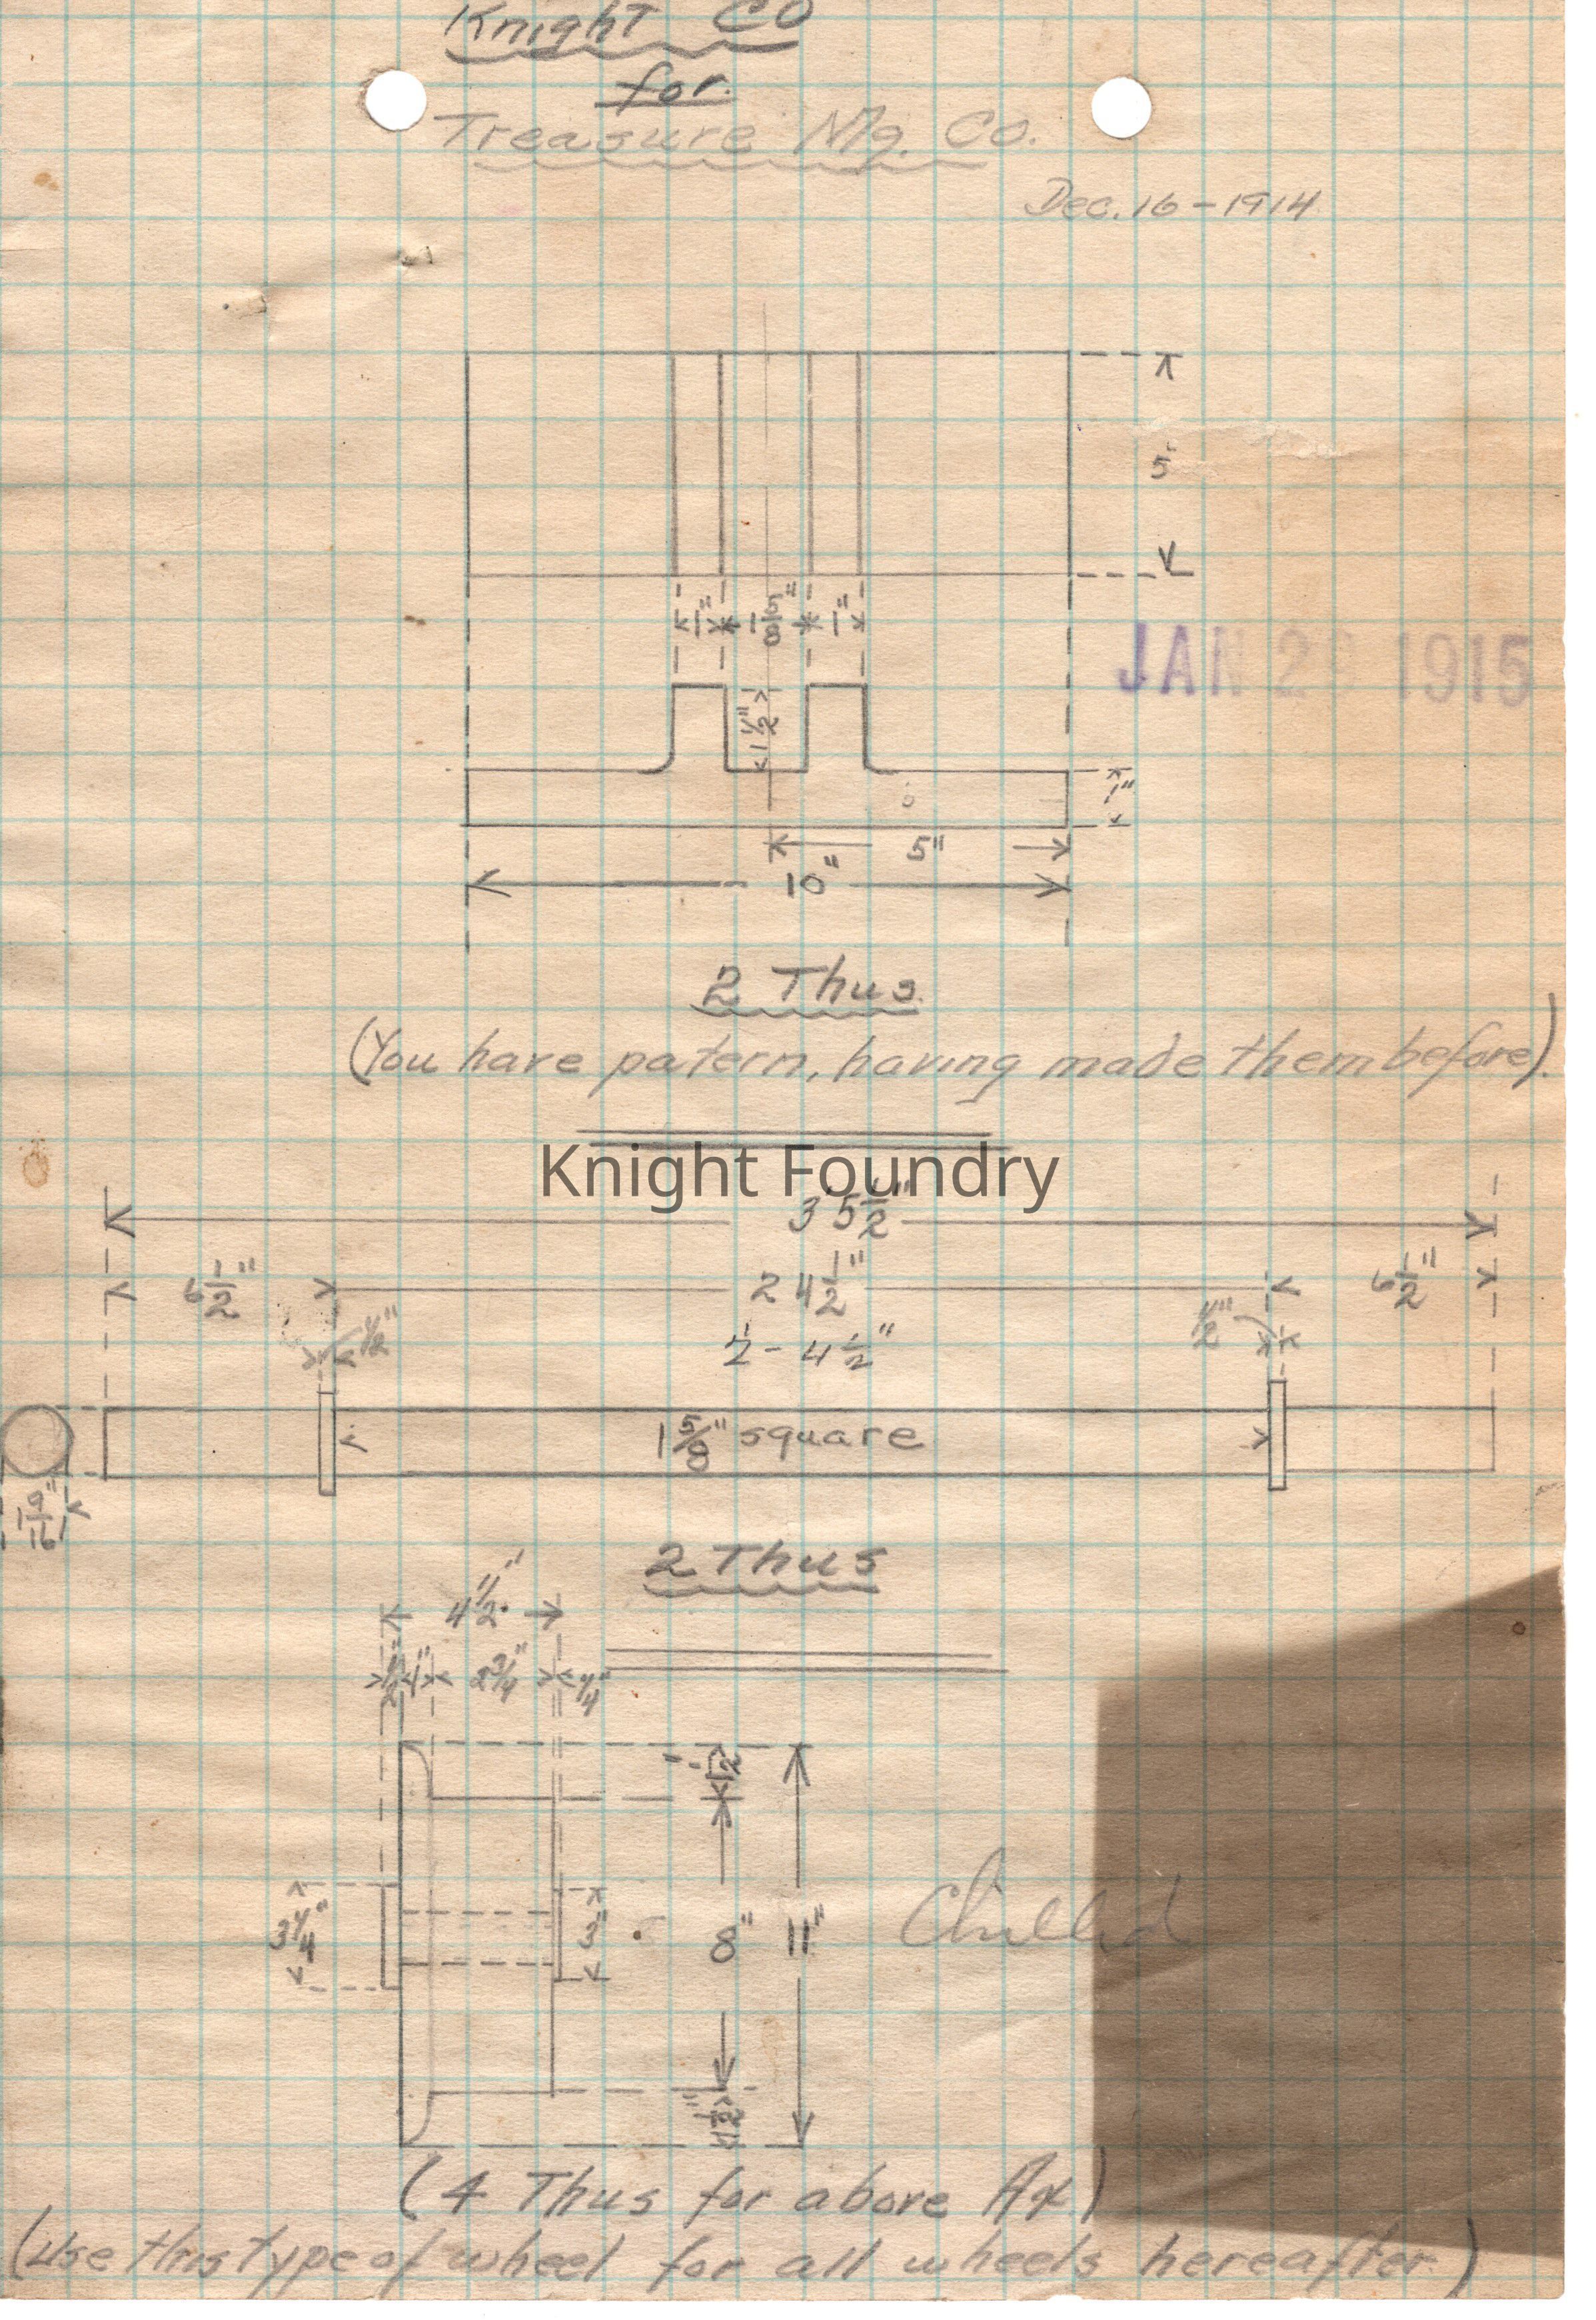 Knight Co
for
Treasure Mg. Co.
Dec. 16 - 1914
5"
1" 1 5/8" 1"
JAN 2 1915
1 1/2"
1"
5"
10"
2 Thus.
(You have patern, having made them before).
Knight Foundry
3' 5 1/2"
6 1/2" 2 4 1/2" 6 1/2"
1/2" 1/2"
2' - 4 1/2"
1 5/8" square
1 9/16"
2 Thus
4 1/2"
1/2" 1" 2 3/4" 1/4"
1 1/2
3 1/4" 3" 8" 11" Chilled
1 1/2"
(4 Thus for above Ax)
(Use this type of wheel for all wheels hereafter.)